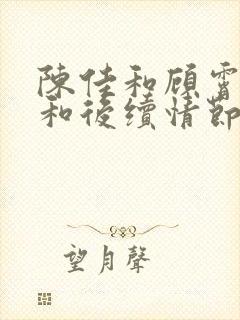 陳佳和顧霄
和後續情節
望月聲